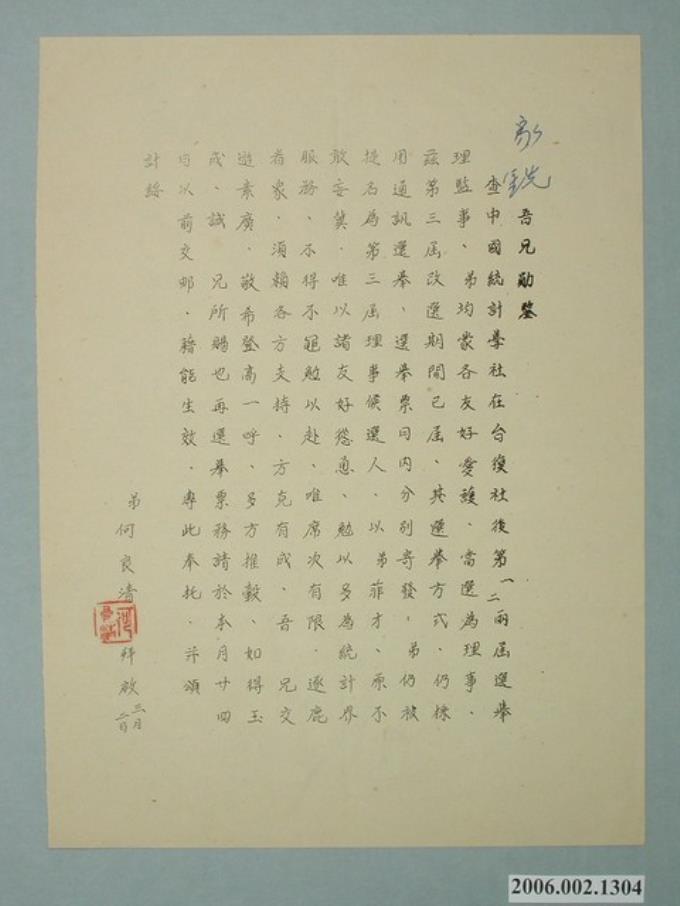 家銑
吾兄勛鑒
查中國統計學社在台復社後第一二兩屆選舉
理監事、弟均蒙各友好愛護、當選為理事．
茲第三屆改選期間已屆、其選舉方式、仍採
用通訊選舉、選舉票日內分別寄發，弟仍被
提名為第三屆理事候選人．以弟菲才、原不
敢妄冀．唯以諸友好慫恿、勉以多為統計界
服務、不得不黽勉以赴、唯席次有限．逐鹿
者眾．須賴各方支持．方克有成．吾兄交
遊素廣．敬希登高一呼、多方推轂、如得玉
成、誠兄所賜也再選舉票務請於本月廿四
日以前交郵．藉能生效．專此奉托．并頌
計綏
弟何良清拜啟三月二日
2006.002.1304